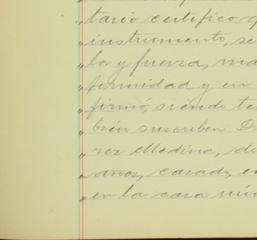 tario certifico q
instrumento, se
lo y fuerza, ma
formidad y en
firmó, siendo tes
bién suscriben D
rez Medina, de
años, casado, en
en la casa núm